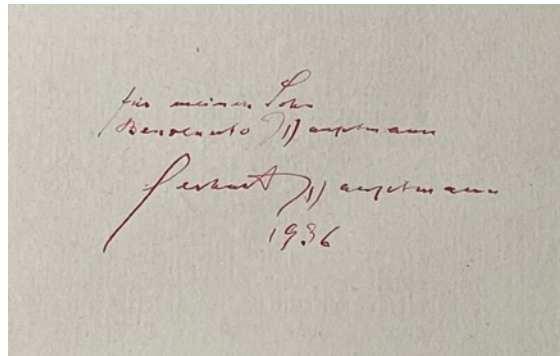 für meinen Sohn
Benvenuto Hauptmann
Gerhart Hauptmann
1936